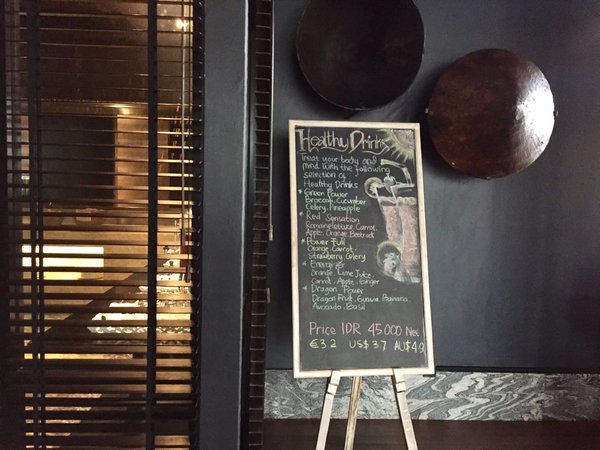 Healthy Drinks
Treat your body and
mind with the following
selection of
Healthy Drinks
* Green Power
Brocoli, Cucumber
Celery, Pineapple
* Red Sensation
Romaine lettuce, Carrot,
Apple, Orange Beetroot
* Power Full
Orange, Carrot,
Strawberry Celery
* Energizer
Orange, Lime Juice
Carrot, Apple, Ginger
* Dragon Power
Dragon Fruit, Guava, Banana
Avocado, Basil
Price IDR 45.000 Net
€3.2 US$3.7 AU$4.9